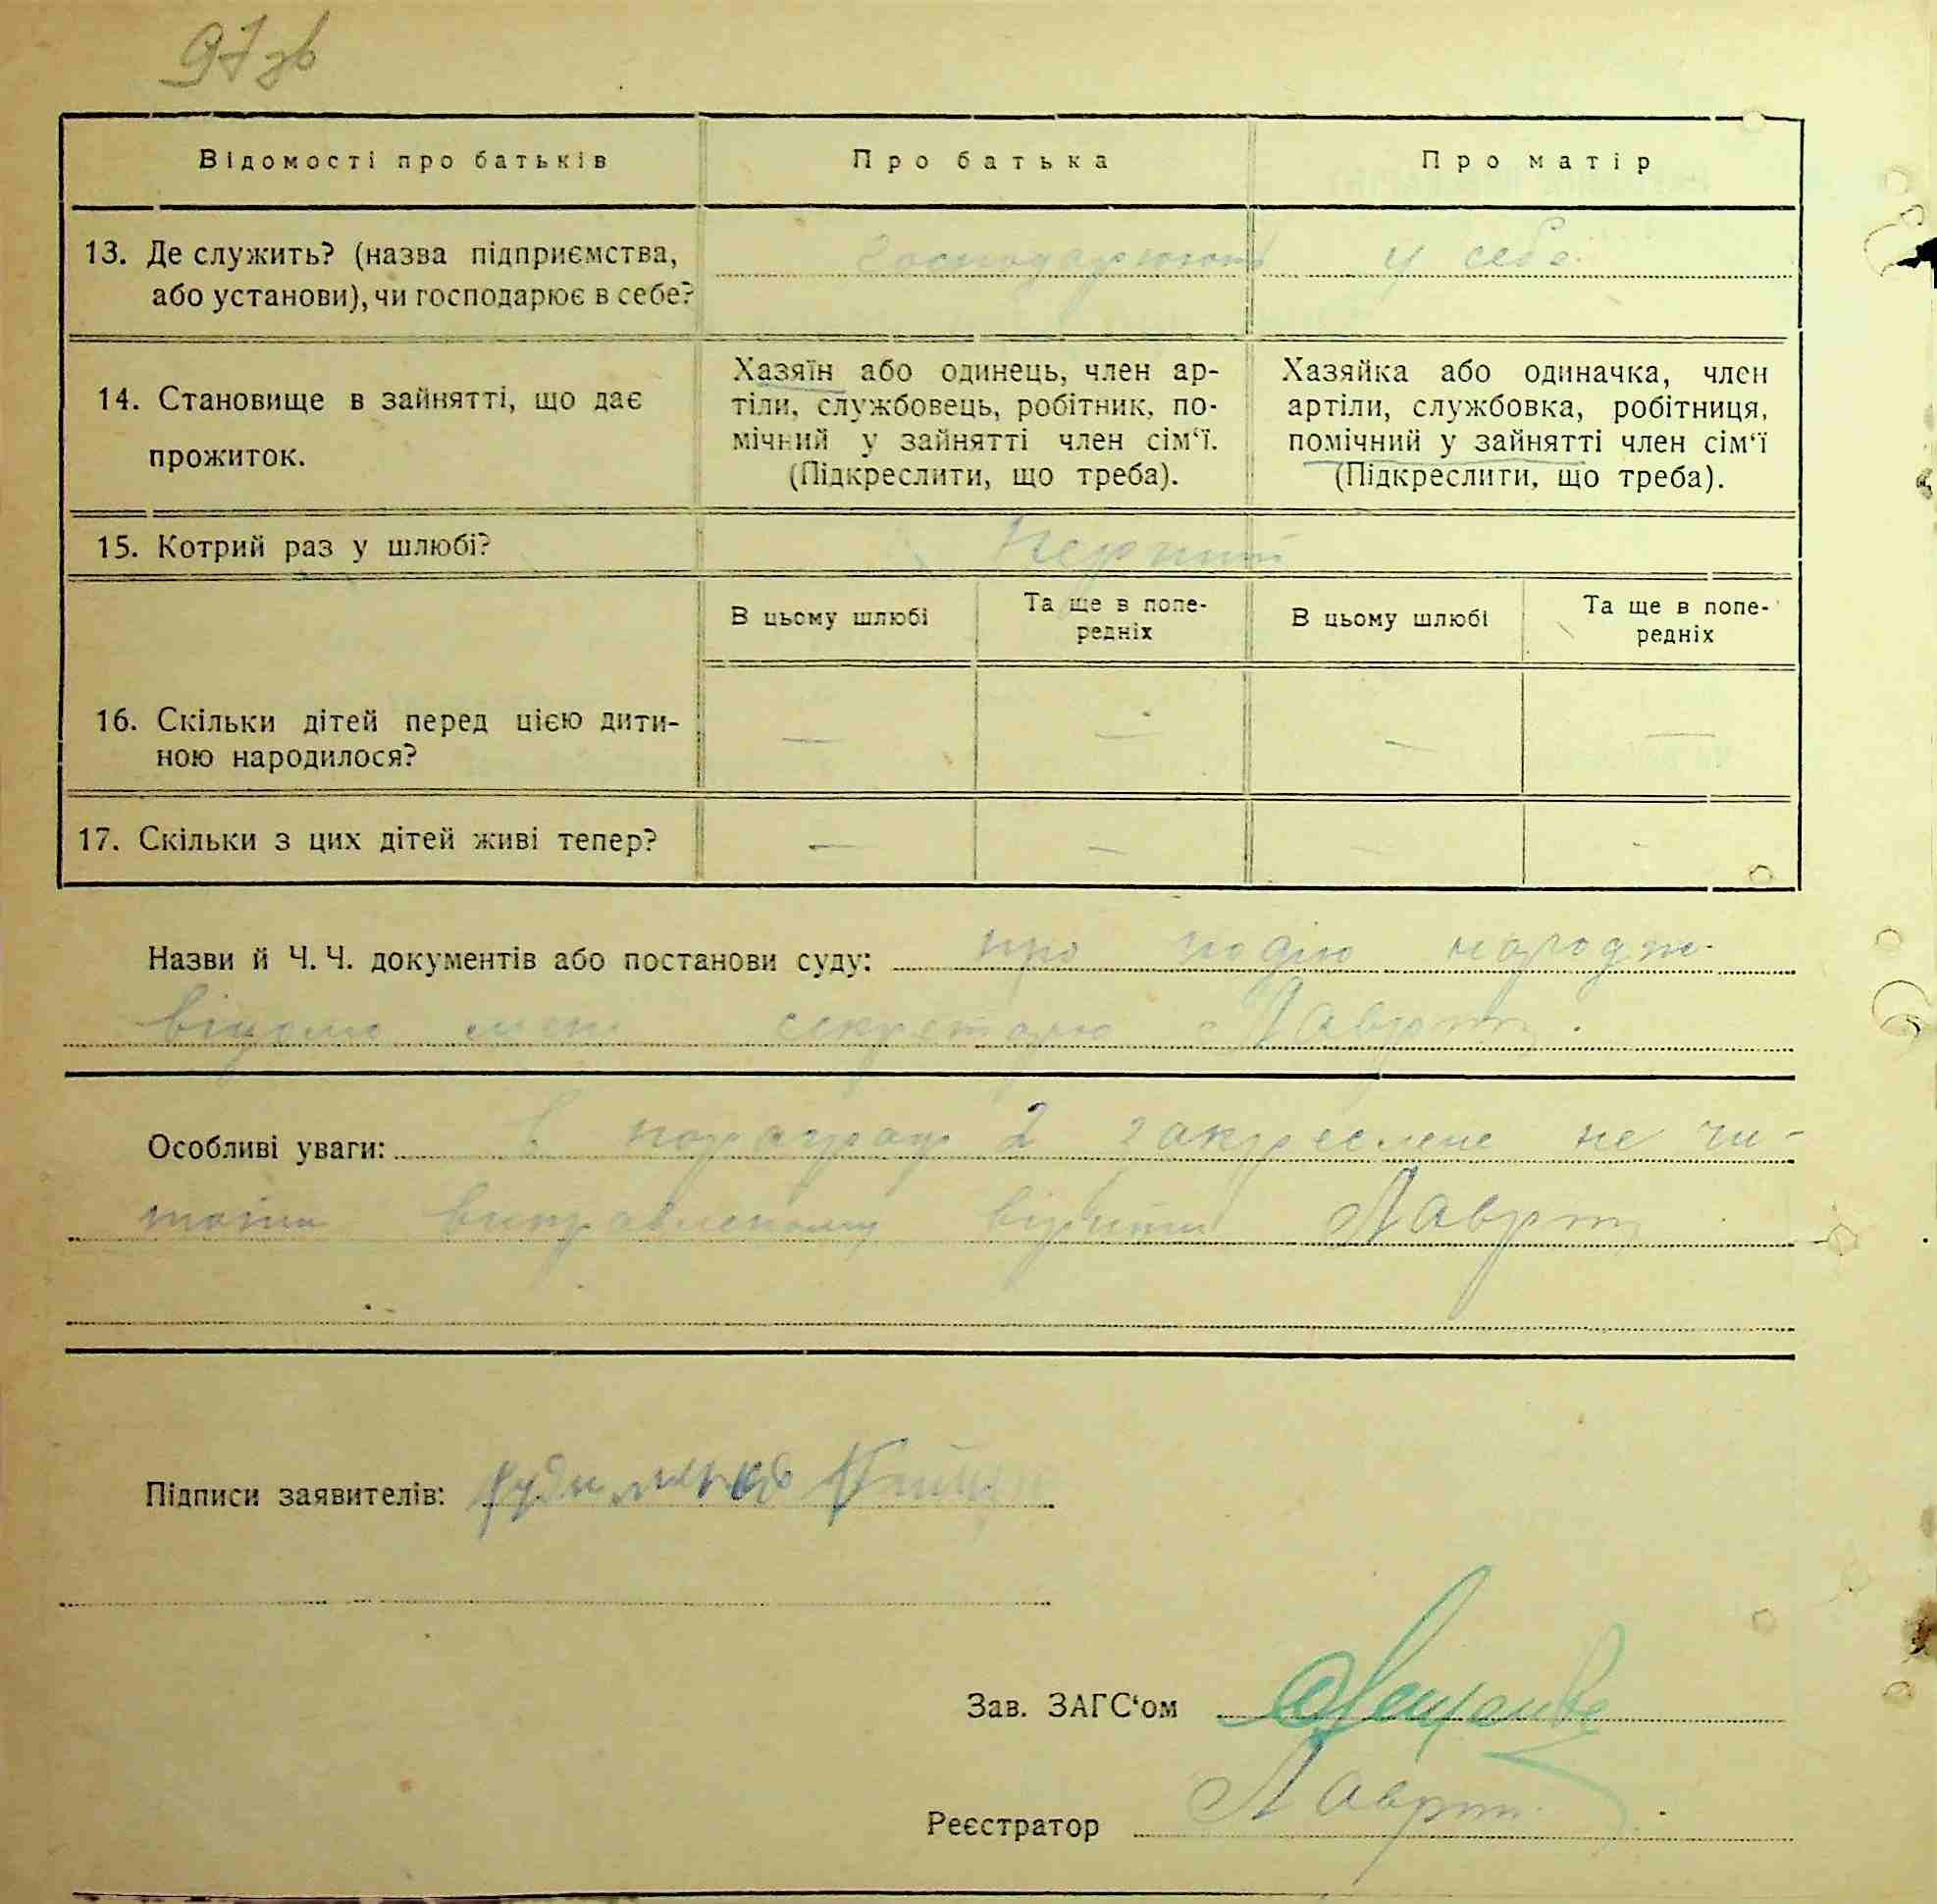 97 зв
Відомості про батьків
Про батька
Про матір
13. Де служить? (назва підприємства,
або установи), чи господарює в себе?
господарюють у себе
14. Становище в зайнятті, що дає
прожиток.
Хазяїн або одинець, член ар-
тіли, службовець, робітник, по-
мічний у зайнятті член сім‘ї.
(Підкреслити, що треба).
Хазяйка або одиначка, член
артіли, службовка, робітниця,
помічний у зайнятті член сім‘ї
(Підкреслити, що треба).
15. Котрий раз у шлюбі?
Перший
В цьому шлюбі
Та ще в попе-
редніх
В цьому шлюбі
Та ще в попе-
редніх
16. Скільки дітей перед цією дити-
ною народилося?
— — — —
17. Скільки з цих дітей живі тепер?
— — — -
Назви й Ч. Ч. документів або постанови суду: про подію народж.
відомо мені секретарю
Особливі уваги: в параграф 2 закреслене не чи-
тати виправленому вірити
Підписи заявителів:
Зав. ЗАГС‘ом
Реєстратор